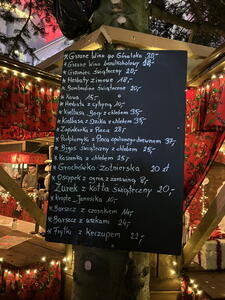 * Grzane Wino po Góralsku 30,-
* Grzane Wino bezalkoholowy 25,-
* Grzaniec świąteczny 20,-
* Herbaty Zimowe 18,-
* Bombardino świąteczne 20,-
* Kawa 15,-
* Herbata z cytryną 10,-
* Kiełbasa z chlebem 35,-
* Kiełbasa z Dzika z chlebem 35,-
* Zapiekanka z Pieca 28,-
z Pieca opalanego drewnem 37,-
* Bigos Świąteczny z chlebem 25,-
* Kaszanka z chlebem 25,-
* Grochówka Żołnierska 20 zł
* Oscypek z ognia z żurawiną 8,-
* Żurek z kotła Świąteczny 20,-
* Janosika 10,-
* Barszcz z czosnkiem 14,-
* Barszcz z uszkami 24,-
* Frytki z keczupem 22,-